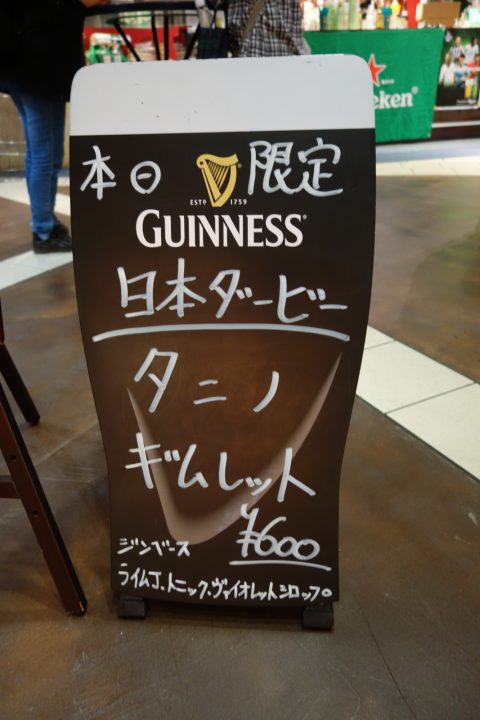 Heineken
本日 限定
ESTD 1759
GUINNESS
日本ダービー
タニノ
ギムレット
¥600
ジンベース
ライムJ、トニック、ヴァイオレットシロップ。